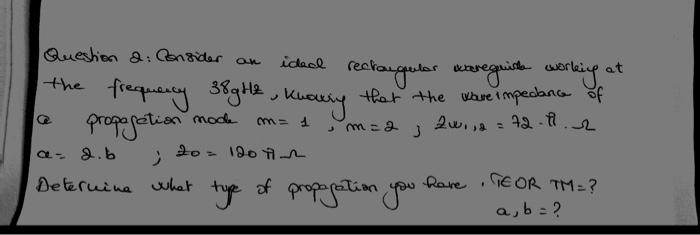 Question 2: Consider an ideal rectangular waveguide working at
the frequency 38gHz, knowing that the wave impedance of
a propagation mode m=1, m=2; Zw1,2 = 72.π.Ω
a= 2.b ; Z0= 120πΩ
Determine what type of propagation you have. TE OR TM=?
a,b=?